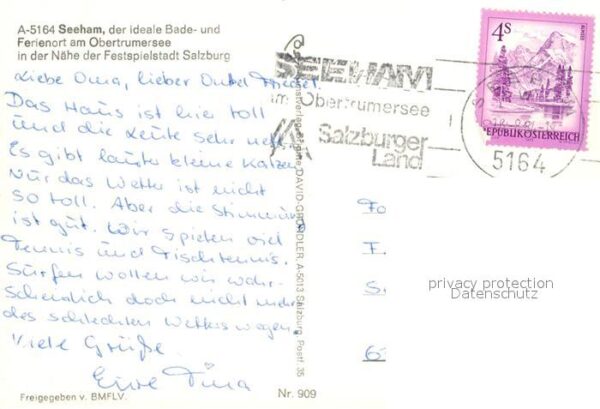 A-5164 Seeham, der ideale Bade- und
Ferienort am Obertrumersee
in der Nähe der Festspielstadt Salzburg
Liebe Oma, lieber Onkel
Das Haus ist hier toll
und die Leute sehr nett.
Es gibt lauter kleine Katzen.
Nur das Wetter ist nicht
so toll. Aber die Stimmung
ist gut. Wir spielen viel
Tennis und Tischtennis.
Surfen wollen wir wahr-
scheinlich doch nicht mehr
des schlechten Wetters wegen.
Viele Grüße
Eure Tina
Freigegeben v. BMFLV.
Nr. 909
DAVID GRÜNDLER, A-5013 Salzburg, Postf. 35
SEEHAM
am Obertrumersee
Salzburger
Land
4S
REPUBLIK ÖSTERREICH
5164
Fo
F.
S.
privacy protection
Datenschutz